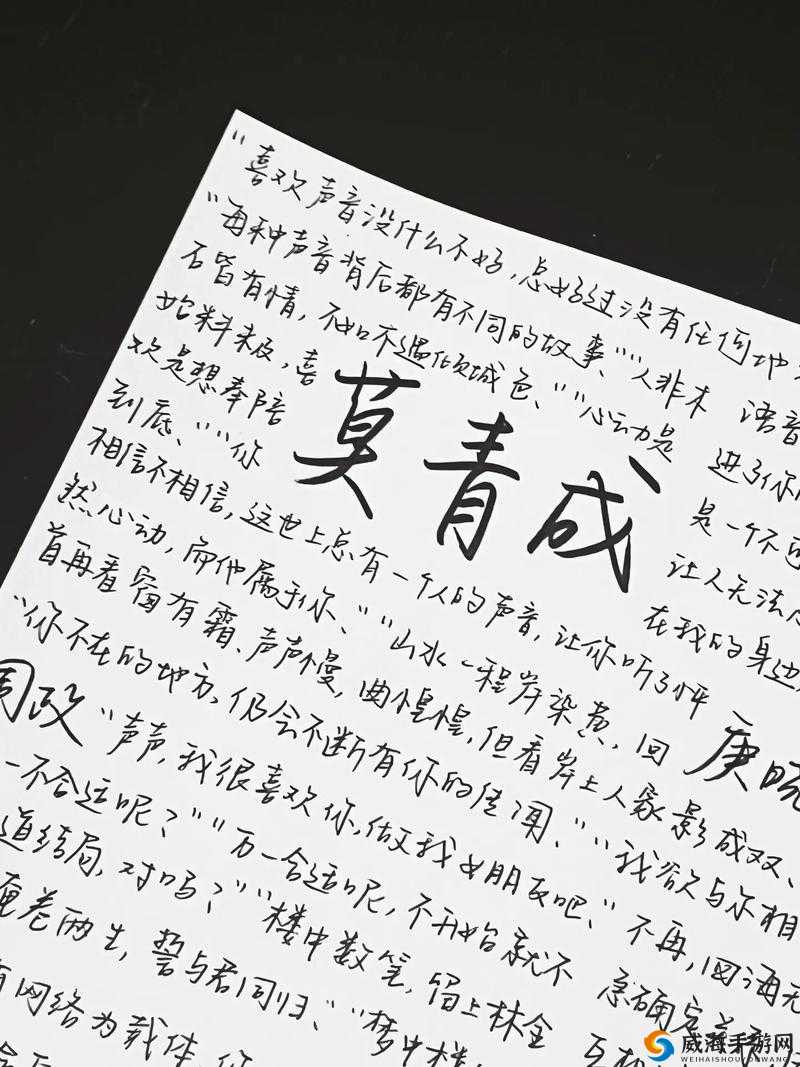 "喜欢声音没什么不好,总好过没有任何地
"每种声音背后都有不同的故事、""人非木 语音
石皆有情,不如不遇倾城色、""心动是 进了你
始料未及,喜 是一个不可
欢是想奉陪 让人无法
到底、""你 在我的身边
莫青成
相信不相信,这世上总有一个人的声音,让你听了怦
然心动,而他属于你、""山水一程岸染黄,回
首再看窗有霜、声声慢,曲惶惶,但看岸上人家影成双、
"你不在的地方,仍会不断有你的佳闻、""我欲与尔相
周政
庚
"声声,我很喜欢你,做我女朋友吧、"不再,四海无
一不合适呢?""万一合适呢,不开始就不 急确定
道结局,对吗?""楼中数笔,留上林全
卷两生,誓与君同归、""梦中楼
有网络为载体,你
威海手游网
WEIHAISHOUYOUWANG